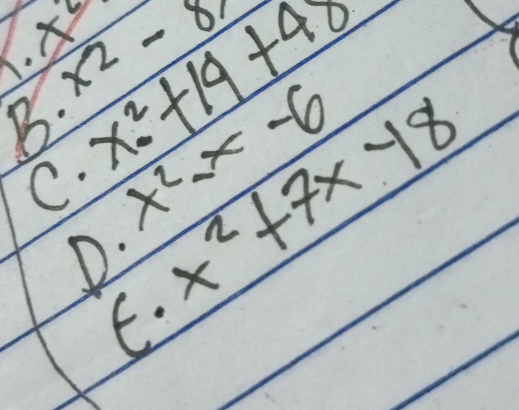 . x²
B. x² - 8
C. x² + 19 + 48
D. x² - x - 6
E. x² + 7x - 18